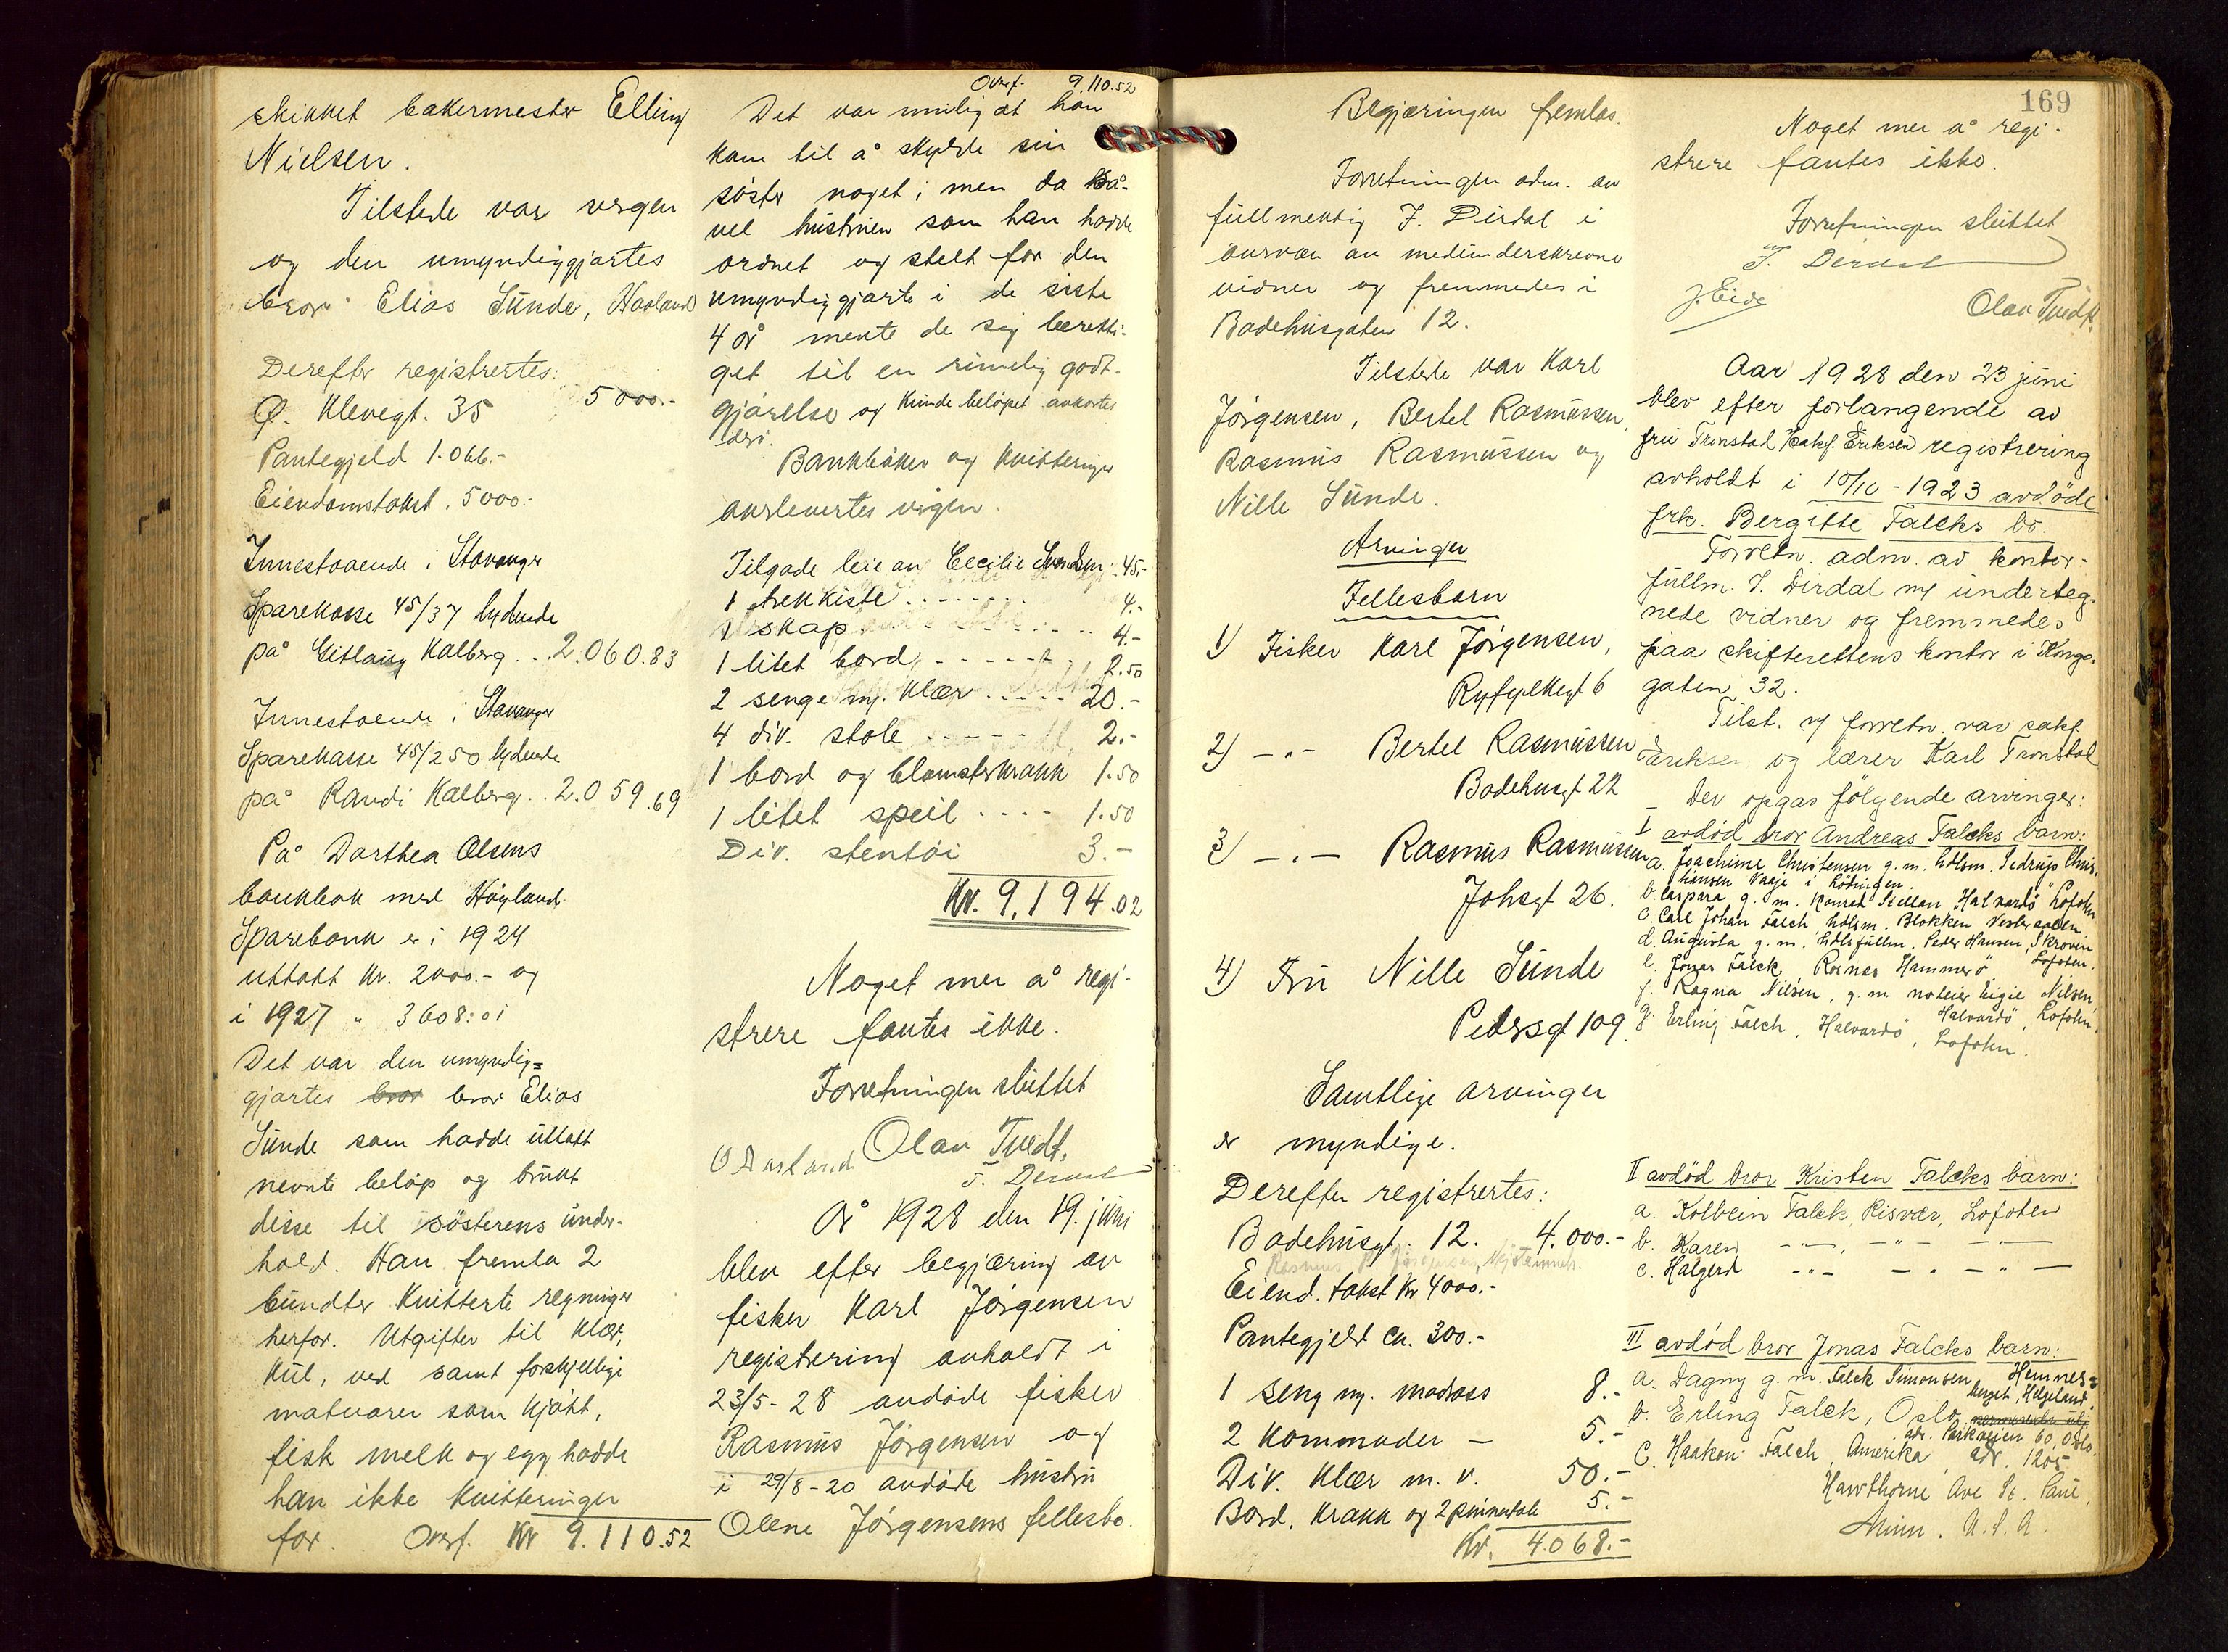 skikket bakermester Elling
Nielsen.
Tilstede var vergen
og den umyndiggjortes
bror Elias Sunde, Havland
Derefter registrertes:
Ø. Klevegt. 35 5000.-
Pantegjeld 1.066.-
Eiendomstakst. 5000.-
Innestaaende i Stavanger
Sparekasse 45/37 lydende
på Gitlaug Kalberg...2.060.83
Innestaaende i Stavanger
Sparekasse 45/250 lydende
på Randi Kalberg..2.059.69
På Dorthea Olsens
bankbok med Høyland
Sparebank er i 1924
uttatt Kr. 2000.- og
i 1927 " 3608:01
Det var den umyndig=
gjortes bror bror Elias
Sunde som hadde uttatt
nevnte beløp og brukt
disse til søsterens under-
hold. Han fremla 2
bundter kvitterte regninger
herfor. Utgifter til klær,
kul, ved samt forskjellige
matvarer som kjøtt,
fisk melk og egg hadde
han ikke kvitteringer
for. Overf. Kr 9.110.52
Overf. 9.110.52
Det var mulig at han
kom til å skylde sin
søster noget; men da både
vel hustruen som han hadde
ordnet og stelt for den
umyndiggjorte i de siste
4 år mente de sig beretti-
get til en rimelig godt-
gjørelse og kunde beløpet avkortes
deri.
Bankbøker og kvitteringer
avlevertes vergen.
Tilgode leie av Cecilie Svendsen: 45.-
1 trekkiste....... 4.-
1 skap....... 4.-
1 litet bord,...... 2.50
2 senge m/. klær..... 20.-
4 div. stole ...... 2.-
1 bord og blomsterkrakk 1.50
1 litet speil .... 1.50
Div. stentøi 3.-
Kr. 9,194.02
Noget mer å regi-
strere fantes ikke.
Forretningen sluttet
Olav Tvedt.
J. Dirdal
År 1928 den 19. juni
blev efter begjæring av
fisker Karl Jørgensen
registrering avholdt i
23/5-28 avdøde fisker
Rasmus Jørgensen og
i 29/8-20 avdøde hustru
Olene Jørgensens fellesbo.
Begjæringen fremlas.
Forretningen adm. av
fullmektig J. Dirdal i
overvær av medunderskrevne
vidner og fremmedes i
Badehusgaten 12.
Tilstede var Karl
Jørgensen, Bertel Rasmussen,
Rasmus Rasmussen og
Nille Sunde.
Arvinger
Fellesbarn
1) Fisker Karl Jørgensen,
Ryfylkegt 6
2) -"- Bertel Rasmussen
Badehusgt 22
3) -"- Rasmus Rasmussen
Johsgt 26.
4) Fru Nille Sunde
Pedersgt 109.
Samtlige arvinger
er myndige.
Derefter registrertes:
Badehusgt. 12. 4.000.-
Eiend. takst Kr 4000.-
Pantegjeld ca. 300.-
1 seng m/. madrass 8.-
2 kommoder - 5.-
Div. klær m. v. 50.-
Bord, krakk og 2 pinnestole 5.-
Kr. 4.068.-
169
Noget mer å regi-
strere fantes ikke.
Forretningen sluttet
J. Dirdal
J. Eide
Olav Tvedt.
Aar 1928 den 23 juni
blev efter forlangende av
fru Tronstad Eriksen registrering
avholdt i 10/10-1923 avdöde
frk. Bergitte Falcks bo.
Forretn. adm. av kontor-
fullm. J. Dirdal m/ underteg-
nede vidner og fremmedes
paa skifterettens kontor i Kongs-
gaten 32.
Tilst. v/ forretn. var sakf.
Eriksen og lærer Karl Tronstad
- Der opgas følgende arvinger:
I avdöd bror Andreas Falcks barn:
a. Joachime Christensen g.m. hdlsm. Sedrup Chris-
tiansen Vaaje i Lötingen.
b. Caspara g. m. Konrad Stellan Halvardö Lofoten
c. Carl Johan Falch, hdlsm. Blokken Vesteraalen.
d. Augusta g. m. hdlsfullm. Peder Hansen, Skroven
Lofoten.
e. Jonas Falck, Rosnes Hammerö
f. Ragna Nilsen, g.m. noteier Eigil Nilsen
Halvardö, Lofoten.
g. Erling Falch, Halvardö, Lofoten.
II avdöd bror Kristen Falcks barn:
a. Kolbein Falck, Risvær, Lofoten
b. Karen -"-, -"- -"-
c. Halgerd -"- -"- -"-
III avdöd bror Jonas Falcks barn:
a. Dagny g. m. Falck Simonsen Hemnes=
berget, Helgeland.
b. Erling Falck, Oslo,
adr. Parkveien 60, Oslo
c. Haakon Falch, Amerika, adr. 1205
Hawthorne Ave St. Paul,
Minn. U.S.A.